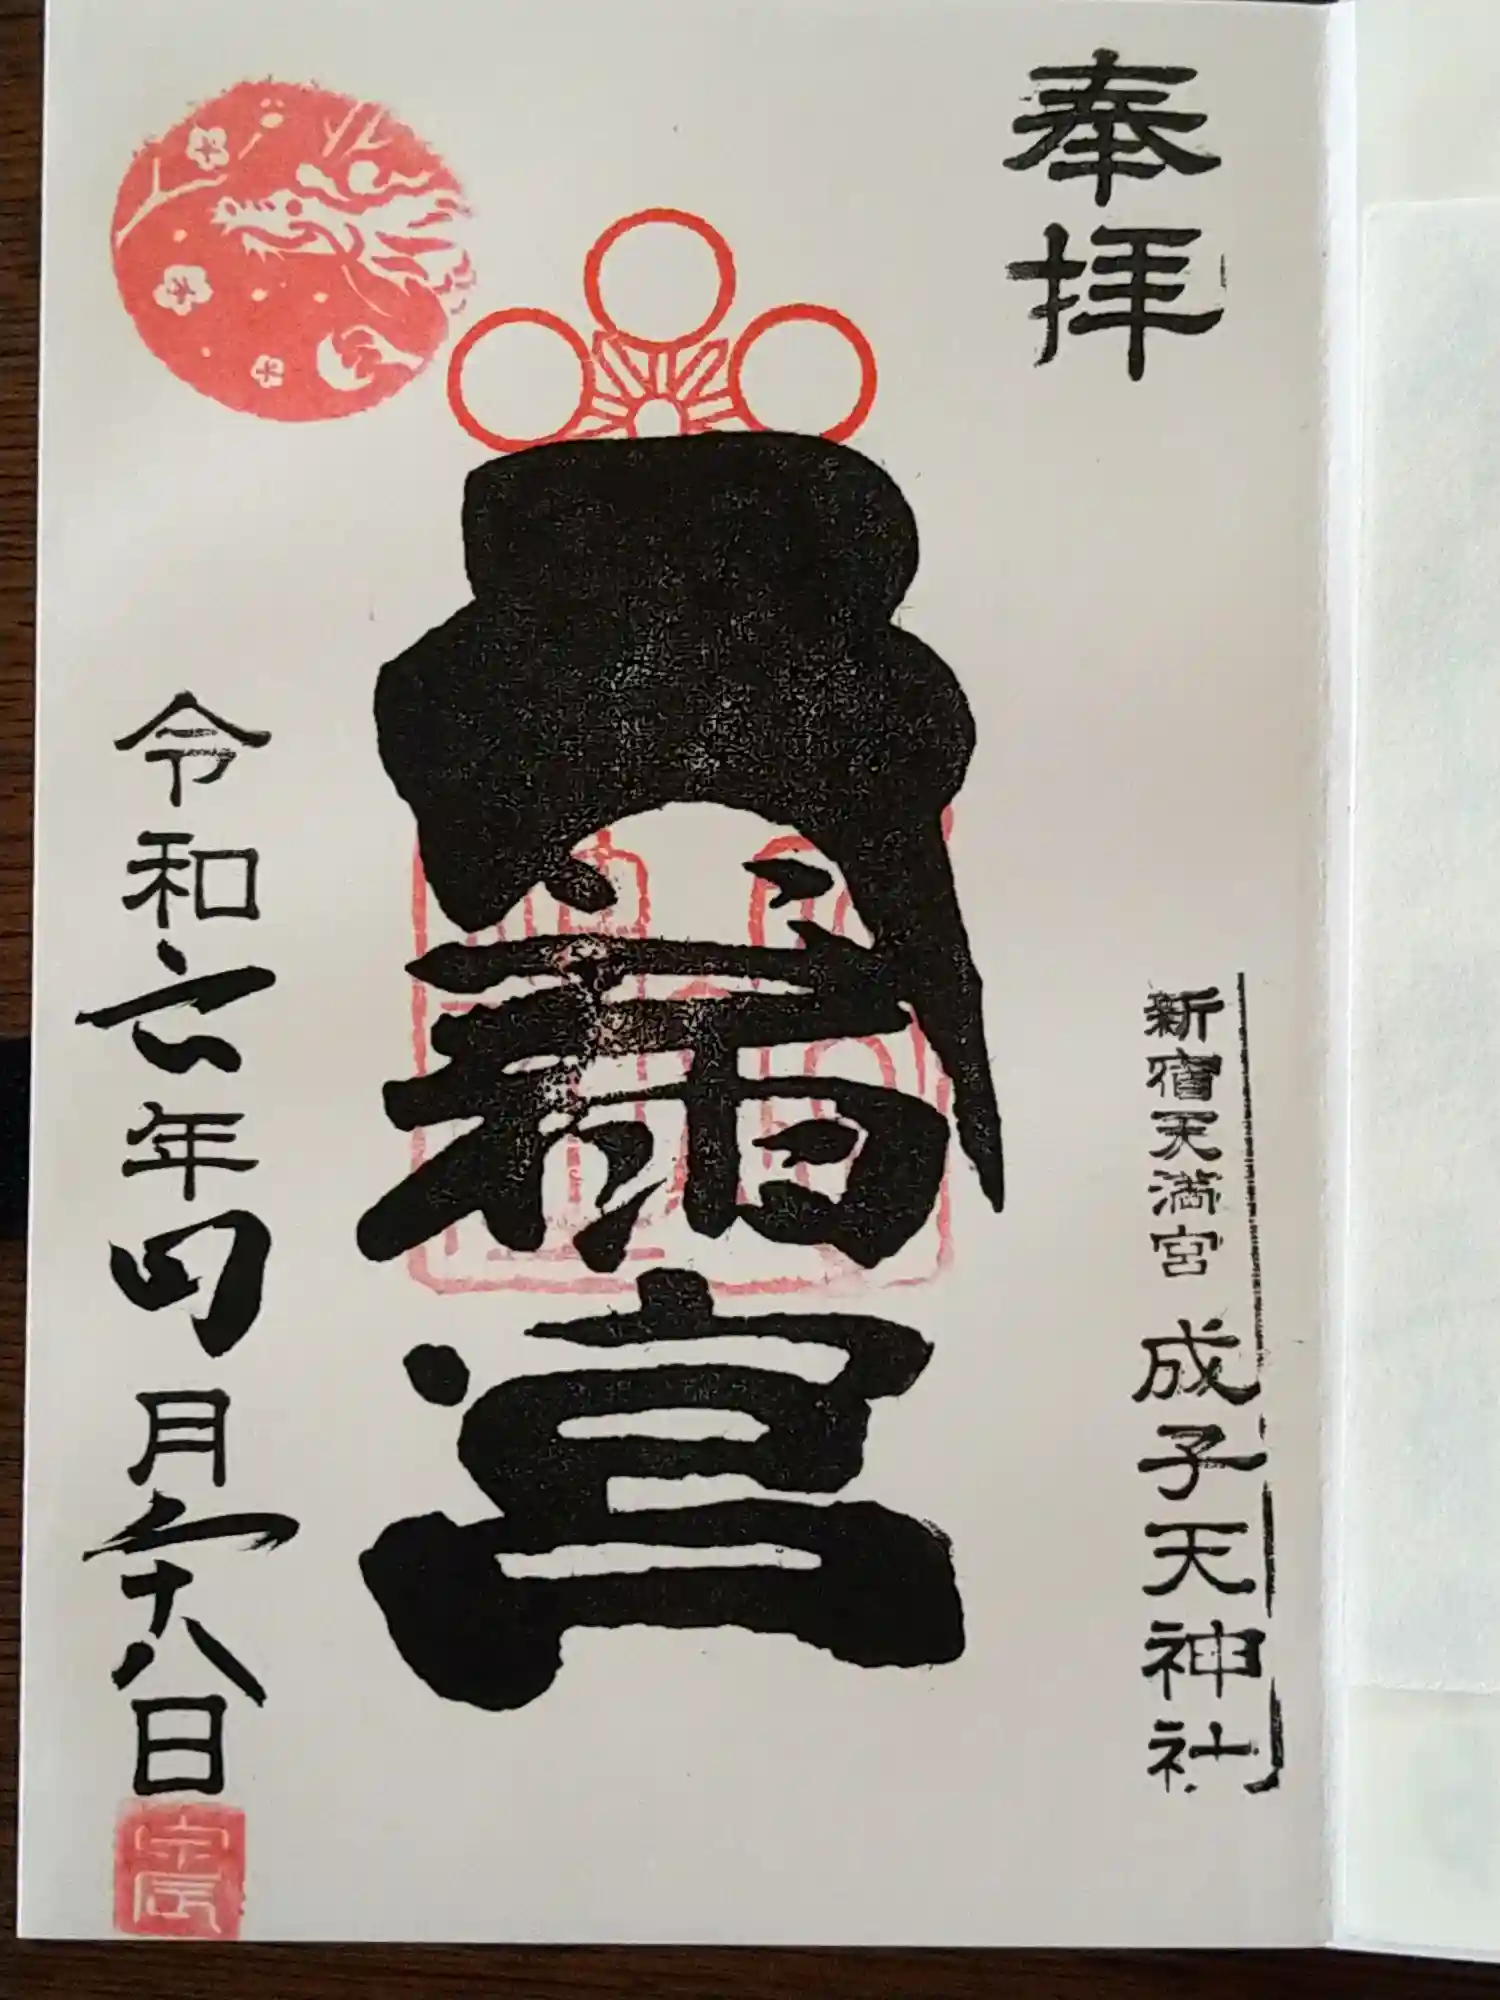 奉拝
新宿天満宮 成子天神社
天満宮
令和六年四月二十八日